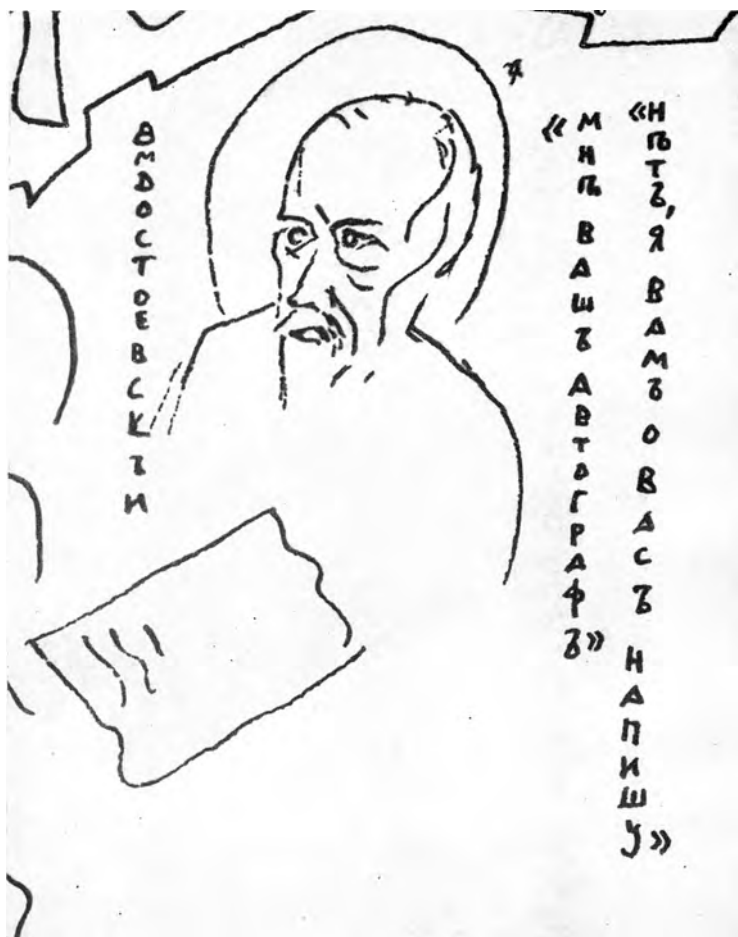 ѲМДОСТОЕВСКЪИ
«МНѢ ВАШЪ АВТОГРАФЪ»
«НѢТЪ, Я ВАМЪ О ВАСЪ НАПИШУ»